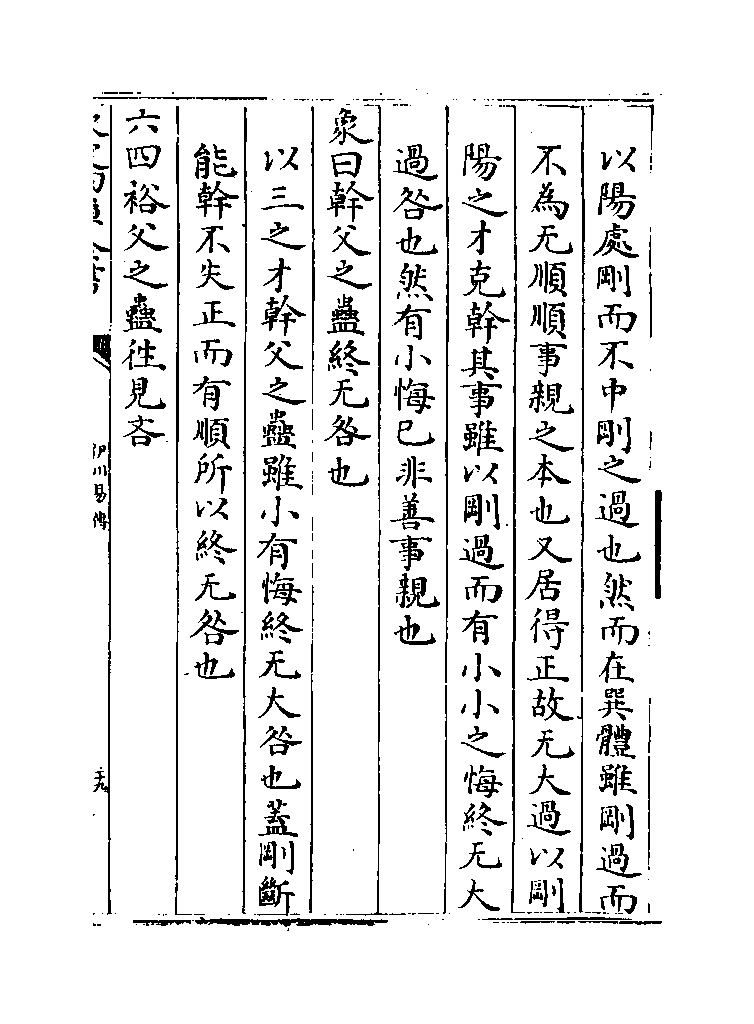 以陽處剛而不中剛之過也然而在巽體雖剛過而
不為无順順事親之本也又居得正故无大過以剛
陽之才克幹其事雖以剛過而有小小之悔終无大
過咎也然有小悔已非善事親也
象曰幹父之蠱終无咎也
以三之才幹父之蠱雖小有悔終无大咎也蓋剛斷
能幹不失正而有順所以終无咎也
六四裕父之蠱往見吝
伊川易傳